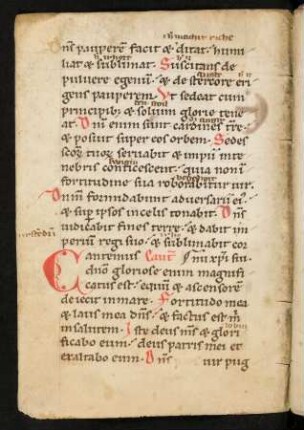 Dn̄s pauperem facit ⁊ ditat. humi
liat ⁊ sublimat. Suscitans de
puluere egenū. ⁊ de stercore eri
gens pauperem. Vt sedeat cum
principib; ⁊ solium glorie tene
at. Dn̄i enim sunt cardines tr̄e.
⁊ posuit super eos orbem. Sedes
scor̨ tuor̨ seruabit ⁊ impii inte
nebris conticescent. quia non ī
fortitudine sua roborabitur uir.
Dnm̄ formidabunt aduersarii ei
⁊ sup ipsos incelis tonabit. Dn̄s
iudicabit fines terre. ⁊ dabit im
perium regi suo. ⁊ sublimabit cor
Cantemus xpi sui
dn̄o gloriose enim magnifi
catus est. equū ⁊ ascensorē
deiecit inmare. Fortitudo mea
⁊ laus mea dn̄s. ⁊ factus est m̄
insalutem. Iste deus m̄s ⁊ glori
ficabo eum. deus patris mei et
exaltabo eum. Dn̄s uir pug